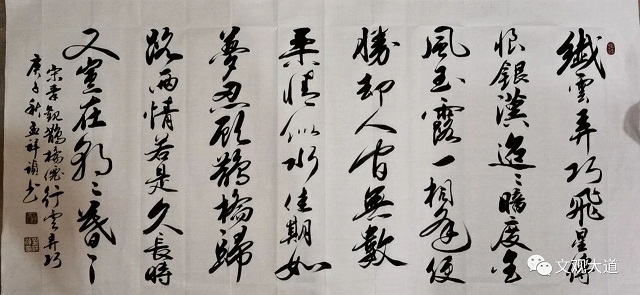 纖雲弄巧飛星傳
恨銀漢迢〻暗度金
風玉露一相逢便
勝却人间無數
柔情似水佳期如
夢忍顧鵲橋歸
路兩情若是久長時
又豈在朝〻暮〻
宋秦觀鵲橋僊行雲弄巧
庚子秋孟祥书
文观大道